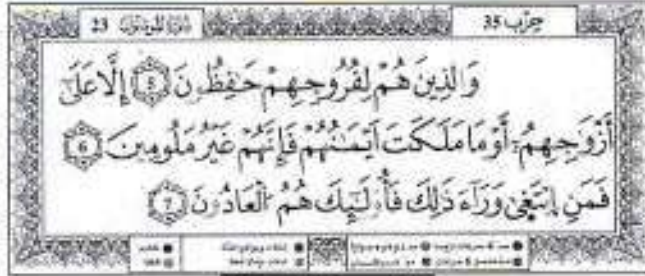 حزب 35
سورة المؤمنون 23
وَالَّذِينَ هُمْ لِفُرُوجِهِمْ حَٰفِظُونَ 5 إِلَّا عَلَىٰٓ
أَزْوَٰجِهِمُۥٓ أَوْ مَا مَلَكَتَ اَيْمَٰنُهُمْ فَإِنَّهُمْ غَيْرُ مَلُومِينَ 6
فَمَنِ اِبْتَغَىٰ وَرَآءَ ذَٰلِكَ فَأُوْلَٰٓئِكَ هُمُ اُلْعَادُونَ 7